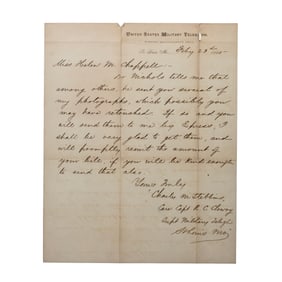 UNITED STATES MILITARY TELEGRAPH,
St. Louis Mo. Feby 23rd
Miss Helen M. Chappell:
Nichols tells me that
among others he sent you several of
my photographs, which possibly you
may have retouched. If so and you
will send them to me by Express, I
shall be very glad to get them, and
will promptly remit the amount of
your bill, if you will be kind enough
to send that also.
Yours Truly
Charles M. Stebbins,
Care Capt R. C. Clowry
Supt Military Telegh
St Louis Mo